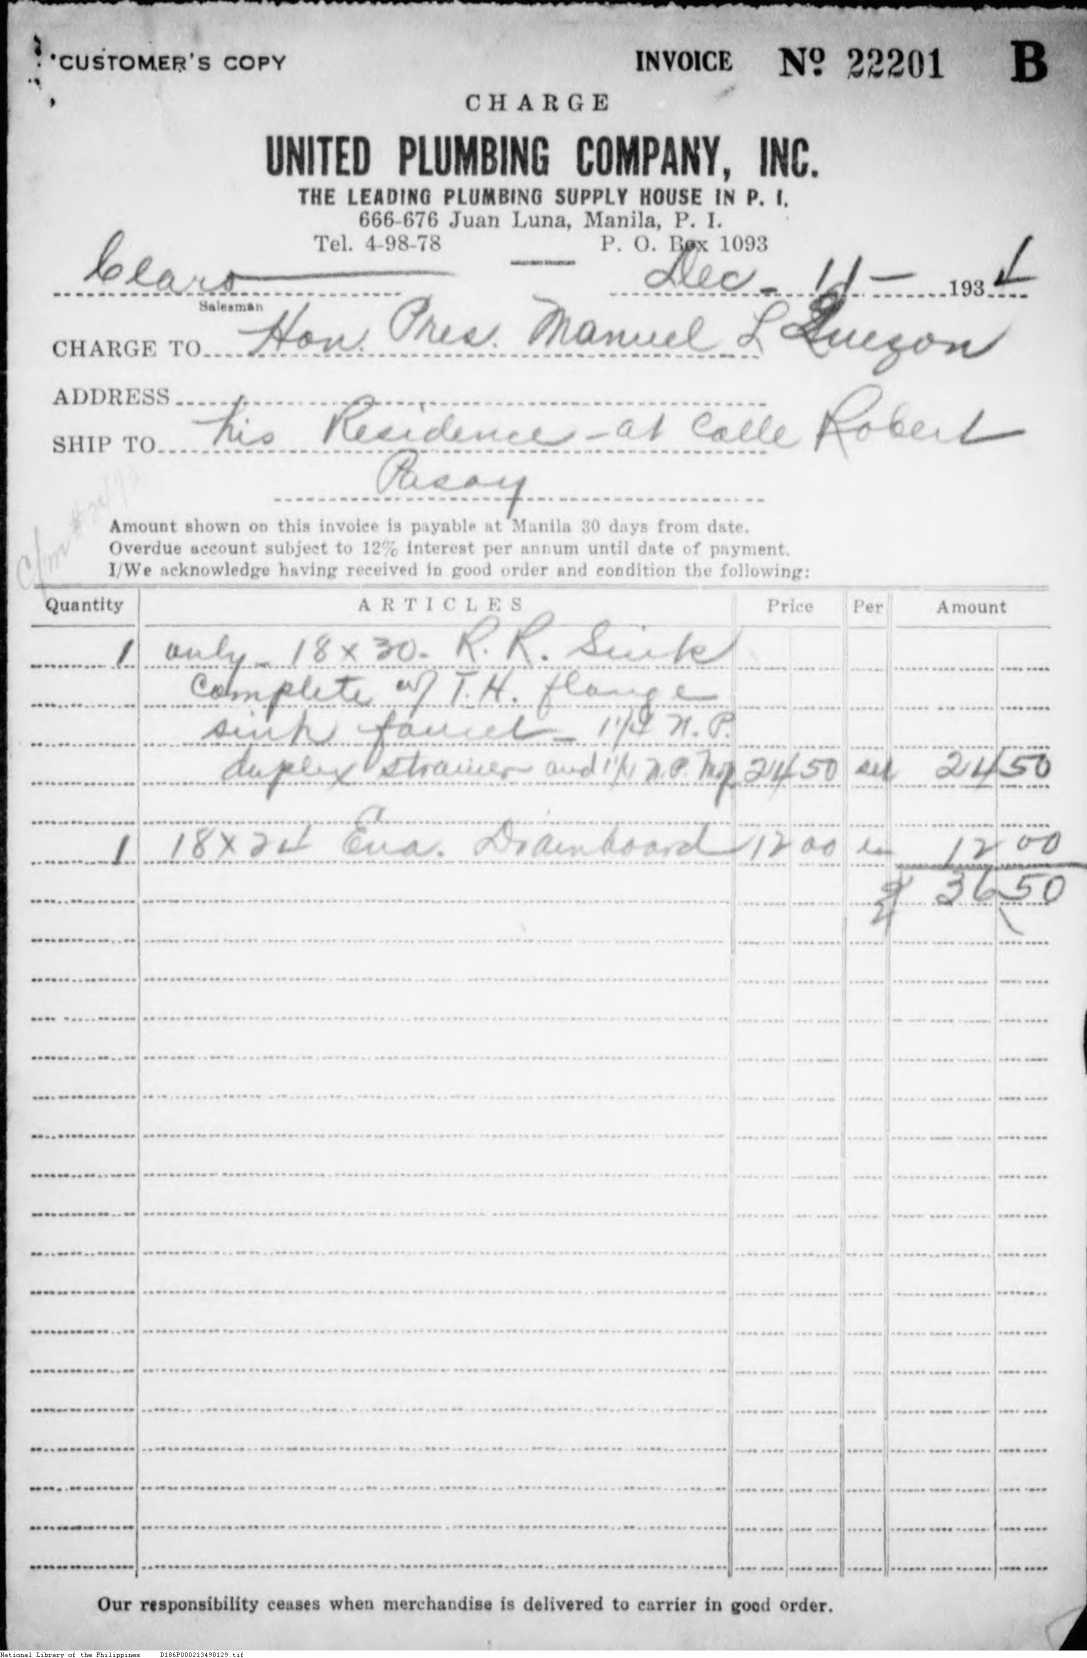 CUSTOMER'S COPY
INVOICE Nº 22201 B
CHARGE
UNITED PLUMBING COMPANY, INC.
THE LEADING PLUMBING SUPPLY HOUSE IN P. I.
666-676 Juan Luna, Manila, P. I.
Tel. 4-98-78 P. O. Box 1093
Claro Dec. 11 - 1934
Salesman
CHARGE TO Hon. Pres. Manuel L Quezon
ADDRESS
SHIP TO his Residence - at Calle Robert
Pasay
Amount shown on this invoice is payable at Manila 30 days from date.
Overdue account subject to 12% interest per annum until date of payment.
I/We acknowledge having received in good order and condition the following:
Quantity ARTICLES Price Per Amount
1 only - 18 x 30 - R. R. Sink
complete w/ T. H. flange
sink faucet - 1 1/4 N. P.
duplex strainer and N. P. 24 50 set 24 50
1 18 x 24 Ena. Drainboard 12 00 12 00
₱ 36 50
Our responsibility ceases when merchandise is delivered to carrier in good order.
National Library of the Philippines D186P000213498129.tif